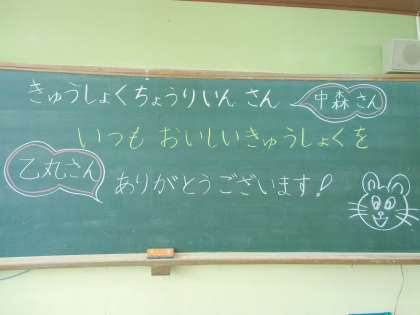 きゅうしょくちょうりいん さん
中森さん
いつも おいしいきゅうしょくを
乙丸さん
ありがとうございます!